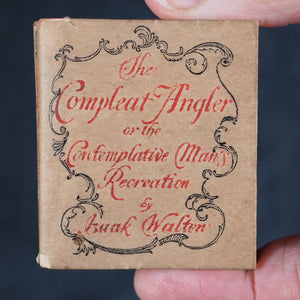 The
Compleat Angler
or the
Contemplative Man's
Recreation
by
Izaak Walton